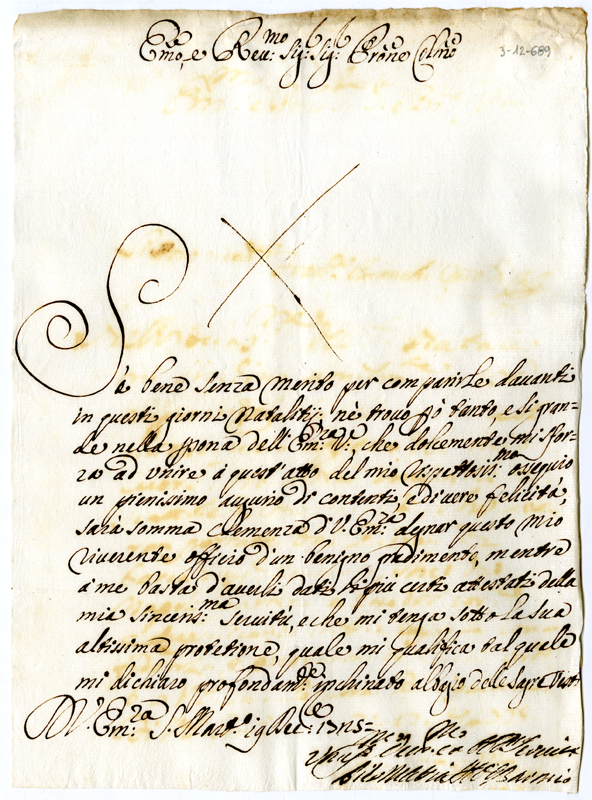 Em̃o, e Reu:mo Sig: Sig: Prone Colmo
3-12-689
Sò bene senza merito per comparirLe davanti
in questi giorni Natalitij: nè trovo però tanto, e si gran-
de nella psona dell' Em:za Vª, che dolcemente mi sfor-
za ad vnire à quest' atto del mio rispettosiss:mo osseguio
un pienissimo augurio di contenti, e di vere felicità,
sarà somma clemenza d' V. Em:za degnar questo mio
riverente officio d'un benigno gradimento, mentre
à me basta d'averLi dati le più certi attestati della
mia sinceriss:ma Servitù, e che mi tenga sotto la sua
altissima protetione, quale mi qualifica tal quale
mi dichiaro profondam:te inchinato al bagio delle Sagre Vesti
D V. Em:za S. Mar:no 19 Dec:e 1725